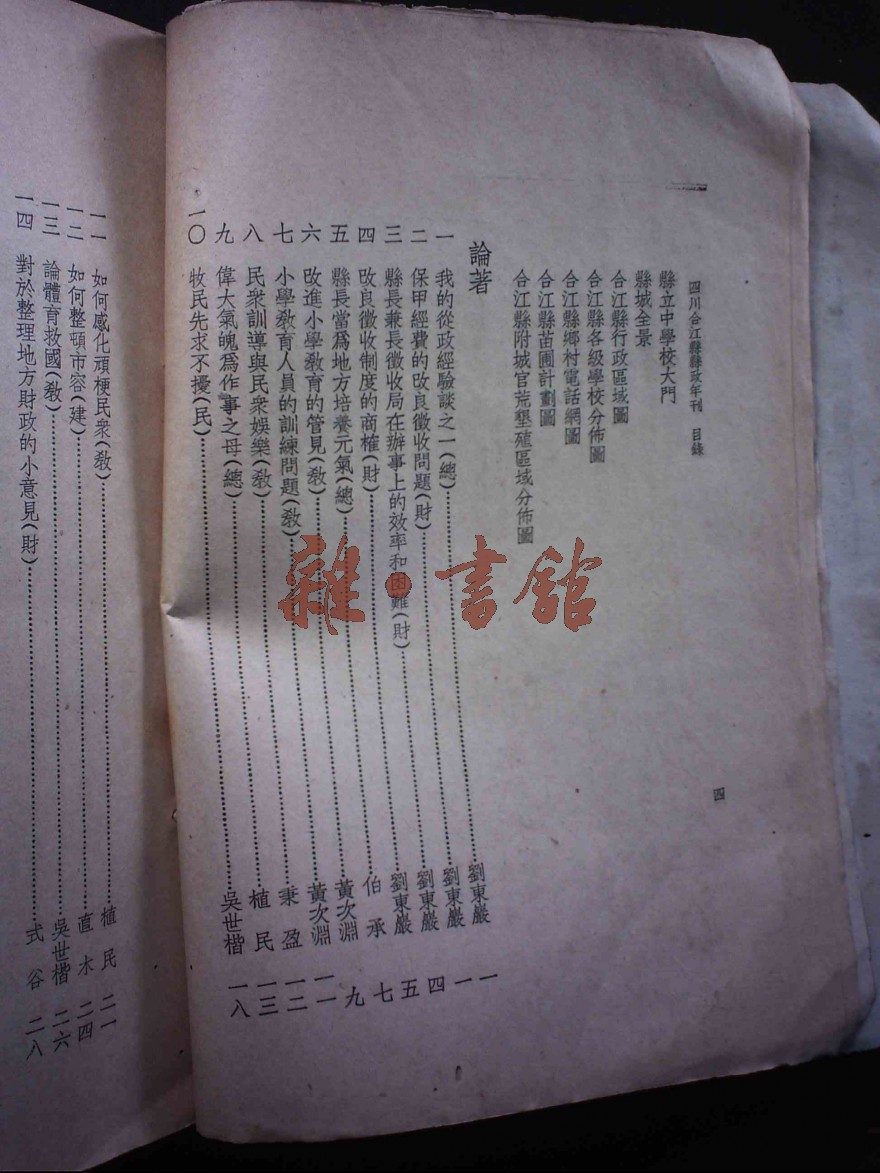 四川合江縣縣政年刊 目錄 四
縣立中學校大門
縣城全景
合江縣行政區域圖
合江縣各級學校分佈圖
合江縣鄉村電話網圖
合江縣苗圃計劃圖
合江縣附城官荒墾殖區域分佈圖
論著
一 我的從政經驗談之一(總)……劉東巖 一
二 保甲經費的改良徵收問題(財)……劉東巖 一
三 縣長兼長徵收局在辦事上的效率和困難(財)……劉東巖 四
四 改良徵收制度的商榷(財)……劉東巖 五
五 縣長當爲地方培養元氣(總)……伯承 七
六 改進小學教育的管見(教)……黃次淵 九
七 小學教育人員的訓練問題(教)……黃次淵 一一
八 民衆訓導與民衆娛樂(教)……秉盈 一二
九 偉大氣魄爲作事之母(總)……植民 一三
一〇 牧民先求不擾(民)……吳世楷 一八
一一 如何感化頑梗民衆(教)……植民 二一
一二 如何整頓市容(建)……直木 二四
一三 論體育救國(教)……吳世楷 二六
一四 對於整理地方財政的小意見(財)……式谷 二八
雜·書館